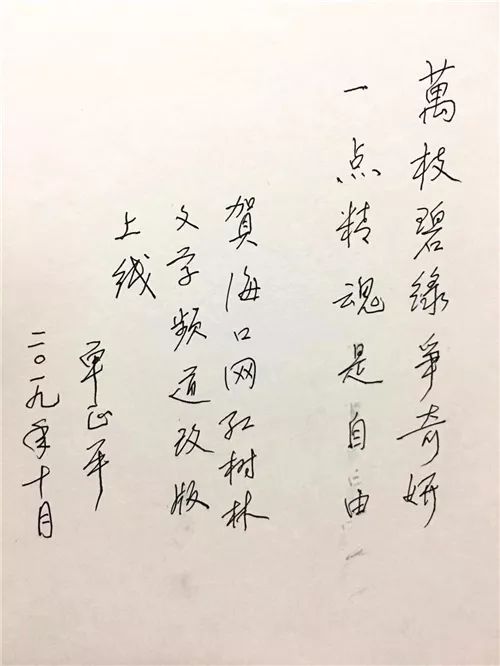 萬枝碧綠爭奇妍
一点精魂是自由
賀海口网红树林
文学频道改版
上线
单正平
二〇一九年十月